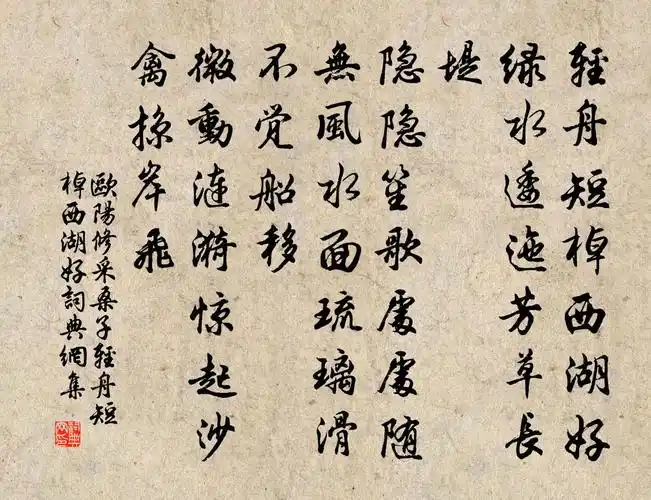 輕舟短棹西湖好
绿水逶迤芳草長
堤
隐隐笙歌處處随
無風水面琉璃滑
不觉船移
微動涟漪惊起沙
禽掠岸飛
歐陽修采桑子輕舟短
棹西湖好詞典網集